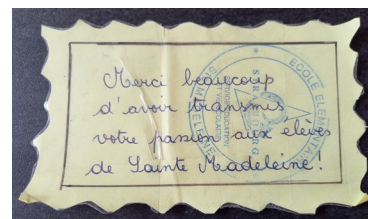 Merci beaucoup
d'avoir transmis
votre passion aux élèves
de Sainte Madeleine !
ECOLE ELEMENTAIRE